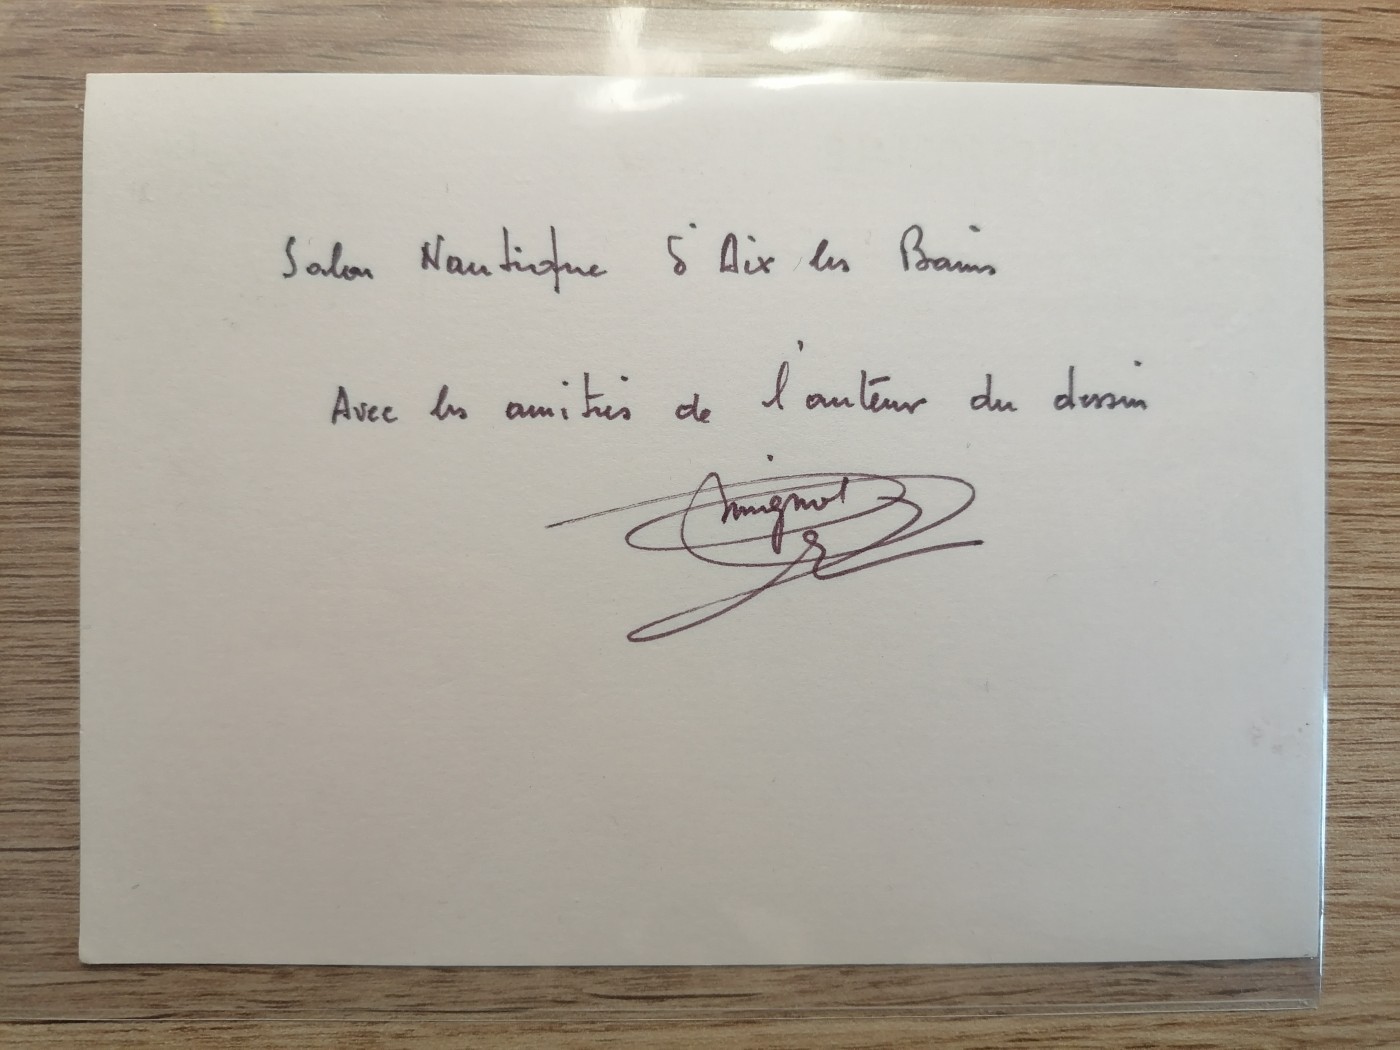 Salon Nautique d'Aix les Bains
Avec les amitiés de l'auteur du dessin